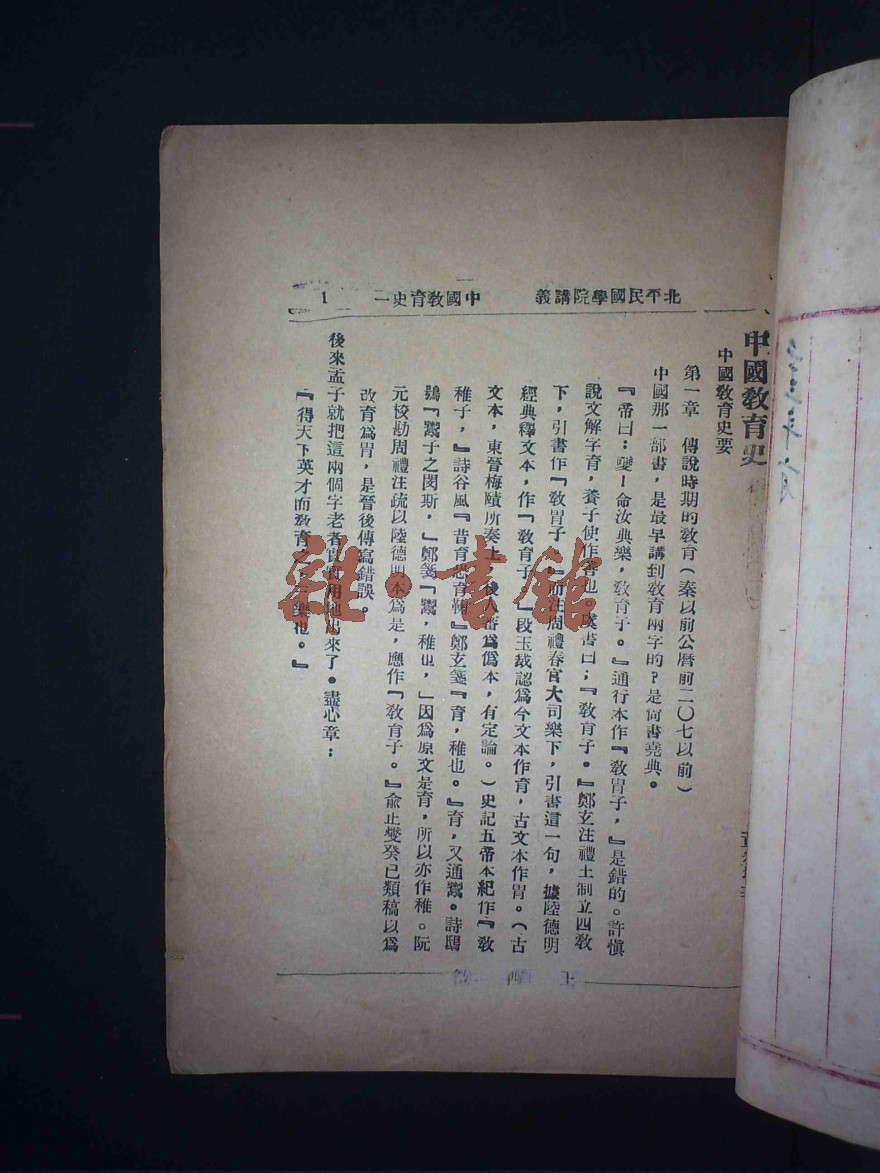 北平民國學院講義 中國教育史一 1
中國教育史
中國教育史要
第一章 傳說時期的教育(秦以前公曆前二〇七以前)
中國那一部書,是最早講到教育兩字的?是尙書堯典。
『帝曰:夔!命汝典樂,敎育子。』通行本作『敎胄子,』是錯的。許愼
說文解字育,養子使作善也。虞書曰;『敎育子。』鄭玄注禮王制立四敎
下,引書作『敎胄子,』而注周禮春官大司樂下,引書這一句,據陸德明
經典釋文本,作『敎育子,』段玉裁認爲今文本作育,古文本作胄。(古
文本,東晉梅賾所奏上,後人審爲僞本,有定論。)史記五帝本紀作『敎
稚子,』詩谷風『昔育恐育鞫』鄭玄箋『育,稚也。』育,又通鬻。詩鴟
鴞『鬻子之閔斯,』鄭箋『鬻,稚也,』因爲原文是育,所以亦作稚。阮
元校勘周禮注疏以陸德明本爲是,應作『敎育子。』俞正燮癸已類稿以爲
改育爲胄,是晉後傳寫錯誤。
後來孟子就把這兩個字老老實實用起來了。盡心章:
『得天下英才而敎育之,三樂也。』
雜·書館